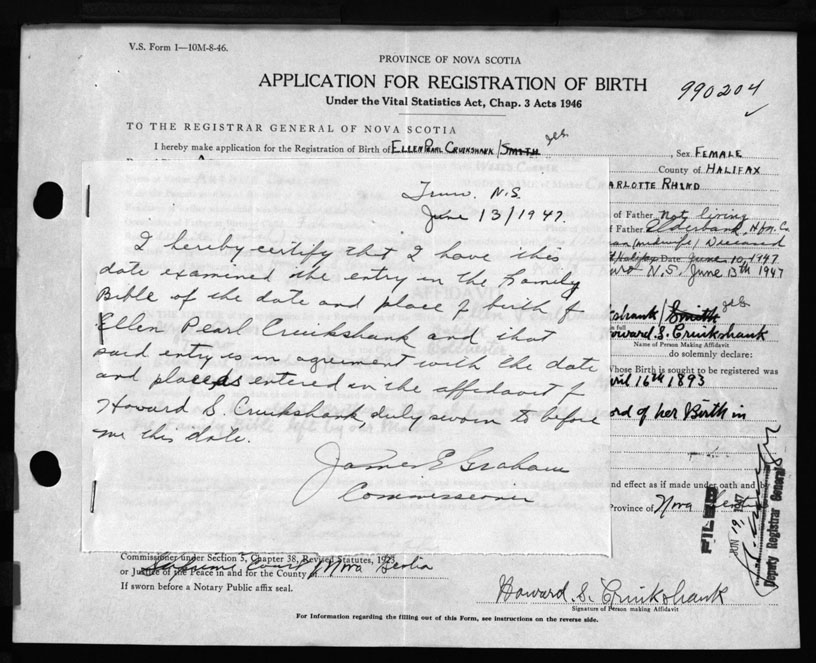 V.S. Form 1—10M-8-46.
PROVINCE OF NOVA SCOTIA
APPLICATION FOR REGISTRATION OF BIRTH
990204
Under the Vital Statistics Act, Chap. 3 Acts 1946
TO THE REGISTRAR GENERAL OF NOVA SCOTIA
I hereby make application for the Registration of Birth of ELLEN PEARL CRUIKSHANK / SMITH, Sex FEMALE
County of HALIFAX
CHARLOTTE RHIND
of Father not living
of Father Elderbank, Hfx. Co.
(midwife) Deceased
Halifax Date June 10, 1947
N.S. June 13th 1947
Truro, N.S.
June 13/1947.
I hereby certify that I have this
date examined the entry in the Family
Bible of the date and place of birth of
Ellen Pearl Cruikshank and that
said entry is in agreement with the date
and place as entered in the affidavit of
Howard S. Cruikshank, duly sworn to before
me this date.
James E Graham
Commissioner
Cruikshank / Smith
Howard S. Cruikshank
Name of Person Making Affidavit
do solemnly declare:
Whose Birth is sought to be registered was
April 16th 1893
record of her Birth in
and effect as if made under oath and by
Province of Nova Scotia
FILED
JUN 19 1947
Deputy Registrar General
Commissioner under Section 5, Chapter 38, Revised Statutes, 1923
Supreme Court of Nova Scotia
or Justice of the Peace in and for the County of
If sworn before a Notary Public affix seal.
Howard S. Cruikshank
Signature of Person making Affidavit
For Information regarding the filling out of this Form, see instructions on the reverse side.